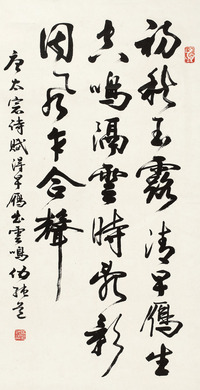 初秋玉露清早鴈出
空鳴隔雲時亂影
因風乍含聲
唐太宗詩賦得早鴈出雲鳴